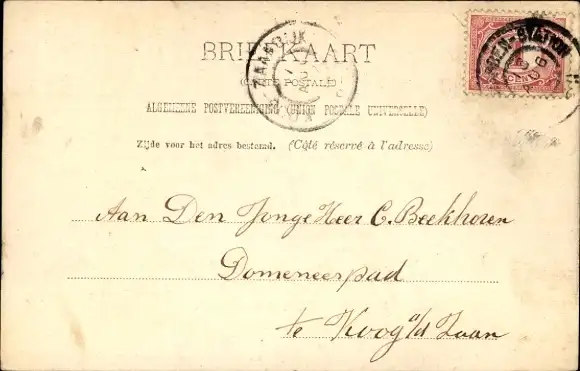 BRIEFKAART
(CARTE POSTALE)
ALGEMEENE POSTVEREENIGING (UNION POSTALE UNIVERSELLE)
Zijde voor het adres bestemd. (Côté réservé à l'adresse)
ZAANDIJK
Aan Den Jonge Heer C. Beekhoven
Domeneerpad
te Koog a/d Zaan